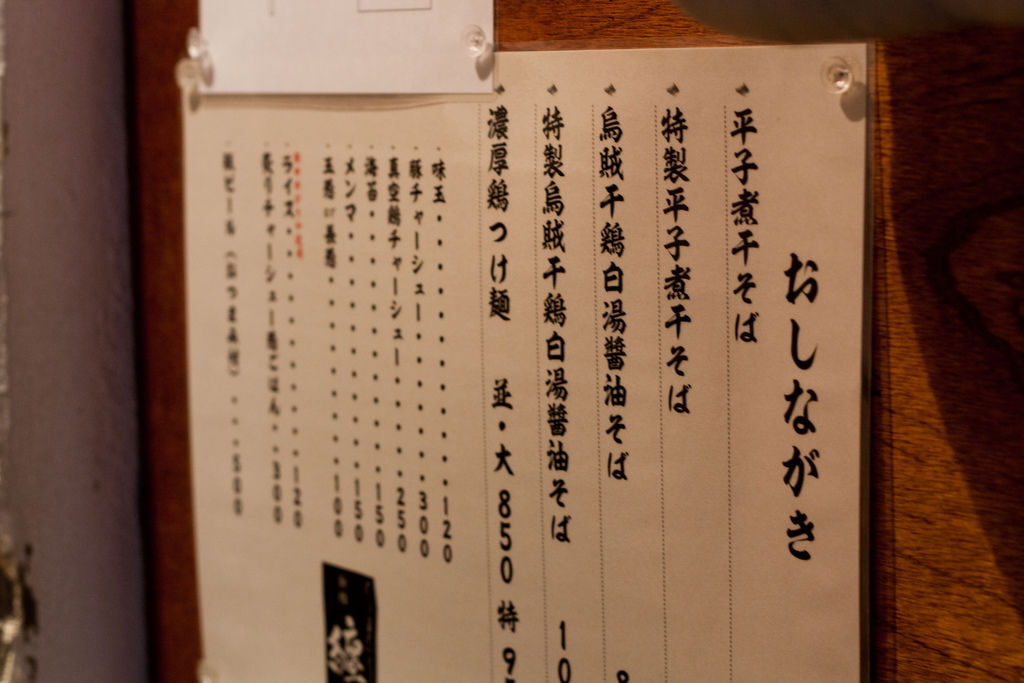 おしながき
平子煮干そば
特製平子煮干そば
烏賊干鶏白湯醤油そば 8
特製烏賊干鶏白湯醤油そば 10
濃厚鶏つけ麺 並・大 850 特 9
味玉・・・・・・・・・・・・120
豚チャーシュー・・・・・・・300
真空鶏チャーシュー・・・・・250
海苔・・・・・・・・・・・・150
メンマ・・・・・・・・・・・150
玉葱or長葱・・・・・・・・・100
ライス・・・・・・・・・・・120
炙りチャーシュー葱ごはん・・300
瓶ビール（おつまみ付）・・・500